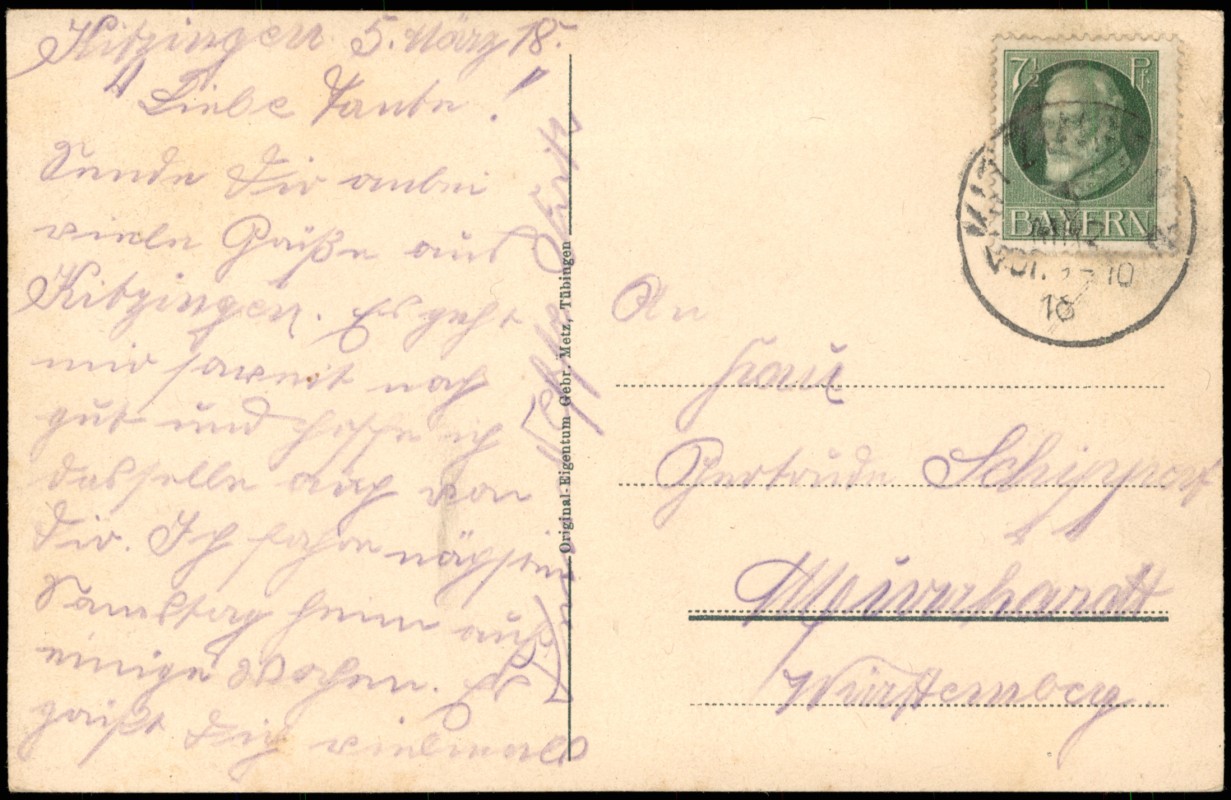 Kitzingen 5. März 18.
"Liebe Tante!"
Sende Dir anbei
viele Grüße aus
Kitzingen. Es geht
mir soweit noch
gut und hoffe ich
dasselbe auch von
Dir. Ich fahre nächsten
Samstag heim auf
einige Wochen. Es
grüßt Dich vielmals
Dein Neffe Fritz
Original-Eigentum Gebr. Metz, Tübingen
7½ Pf
BAYERN
MRZ
VOR. 10
18
An
Frau
Gertrude Schippert
Murrhardt
Württemberg.